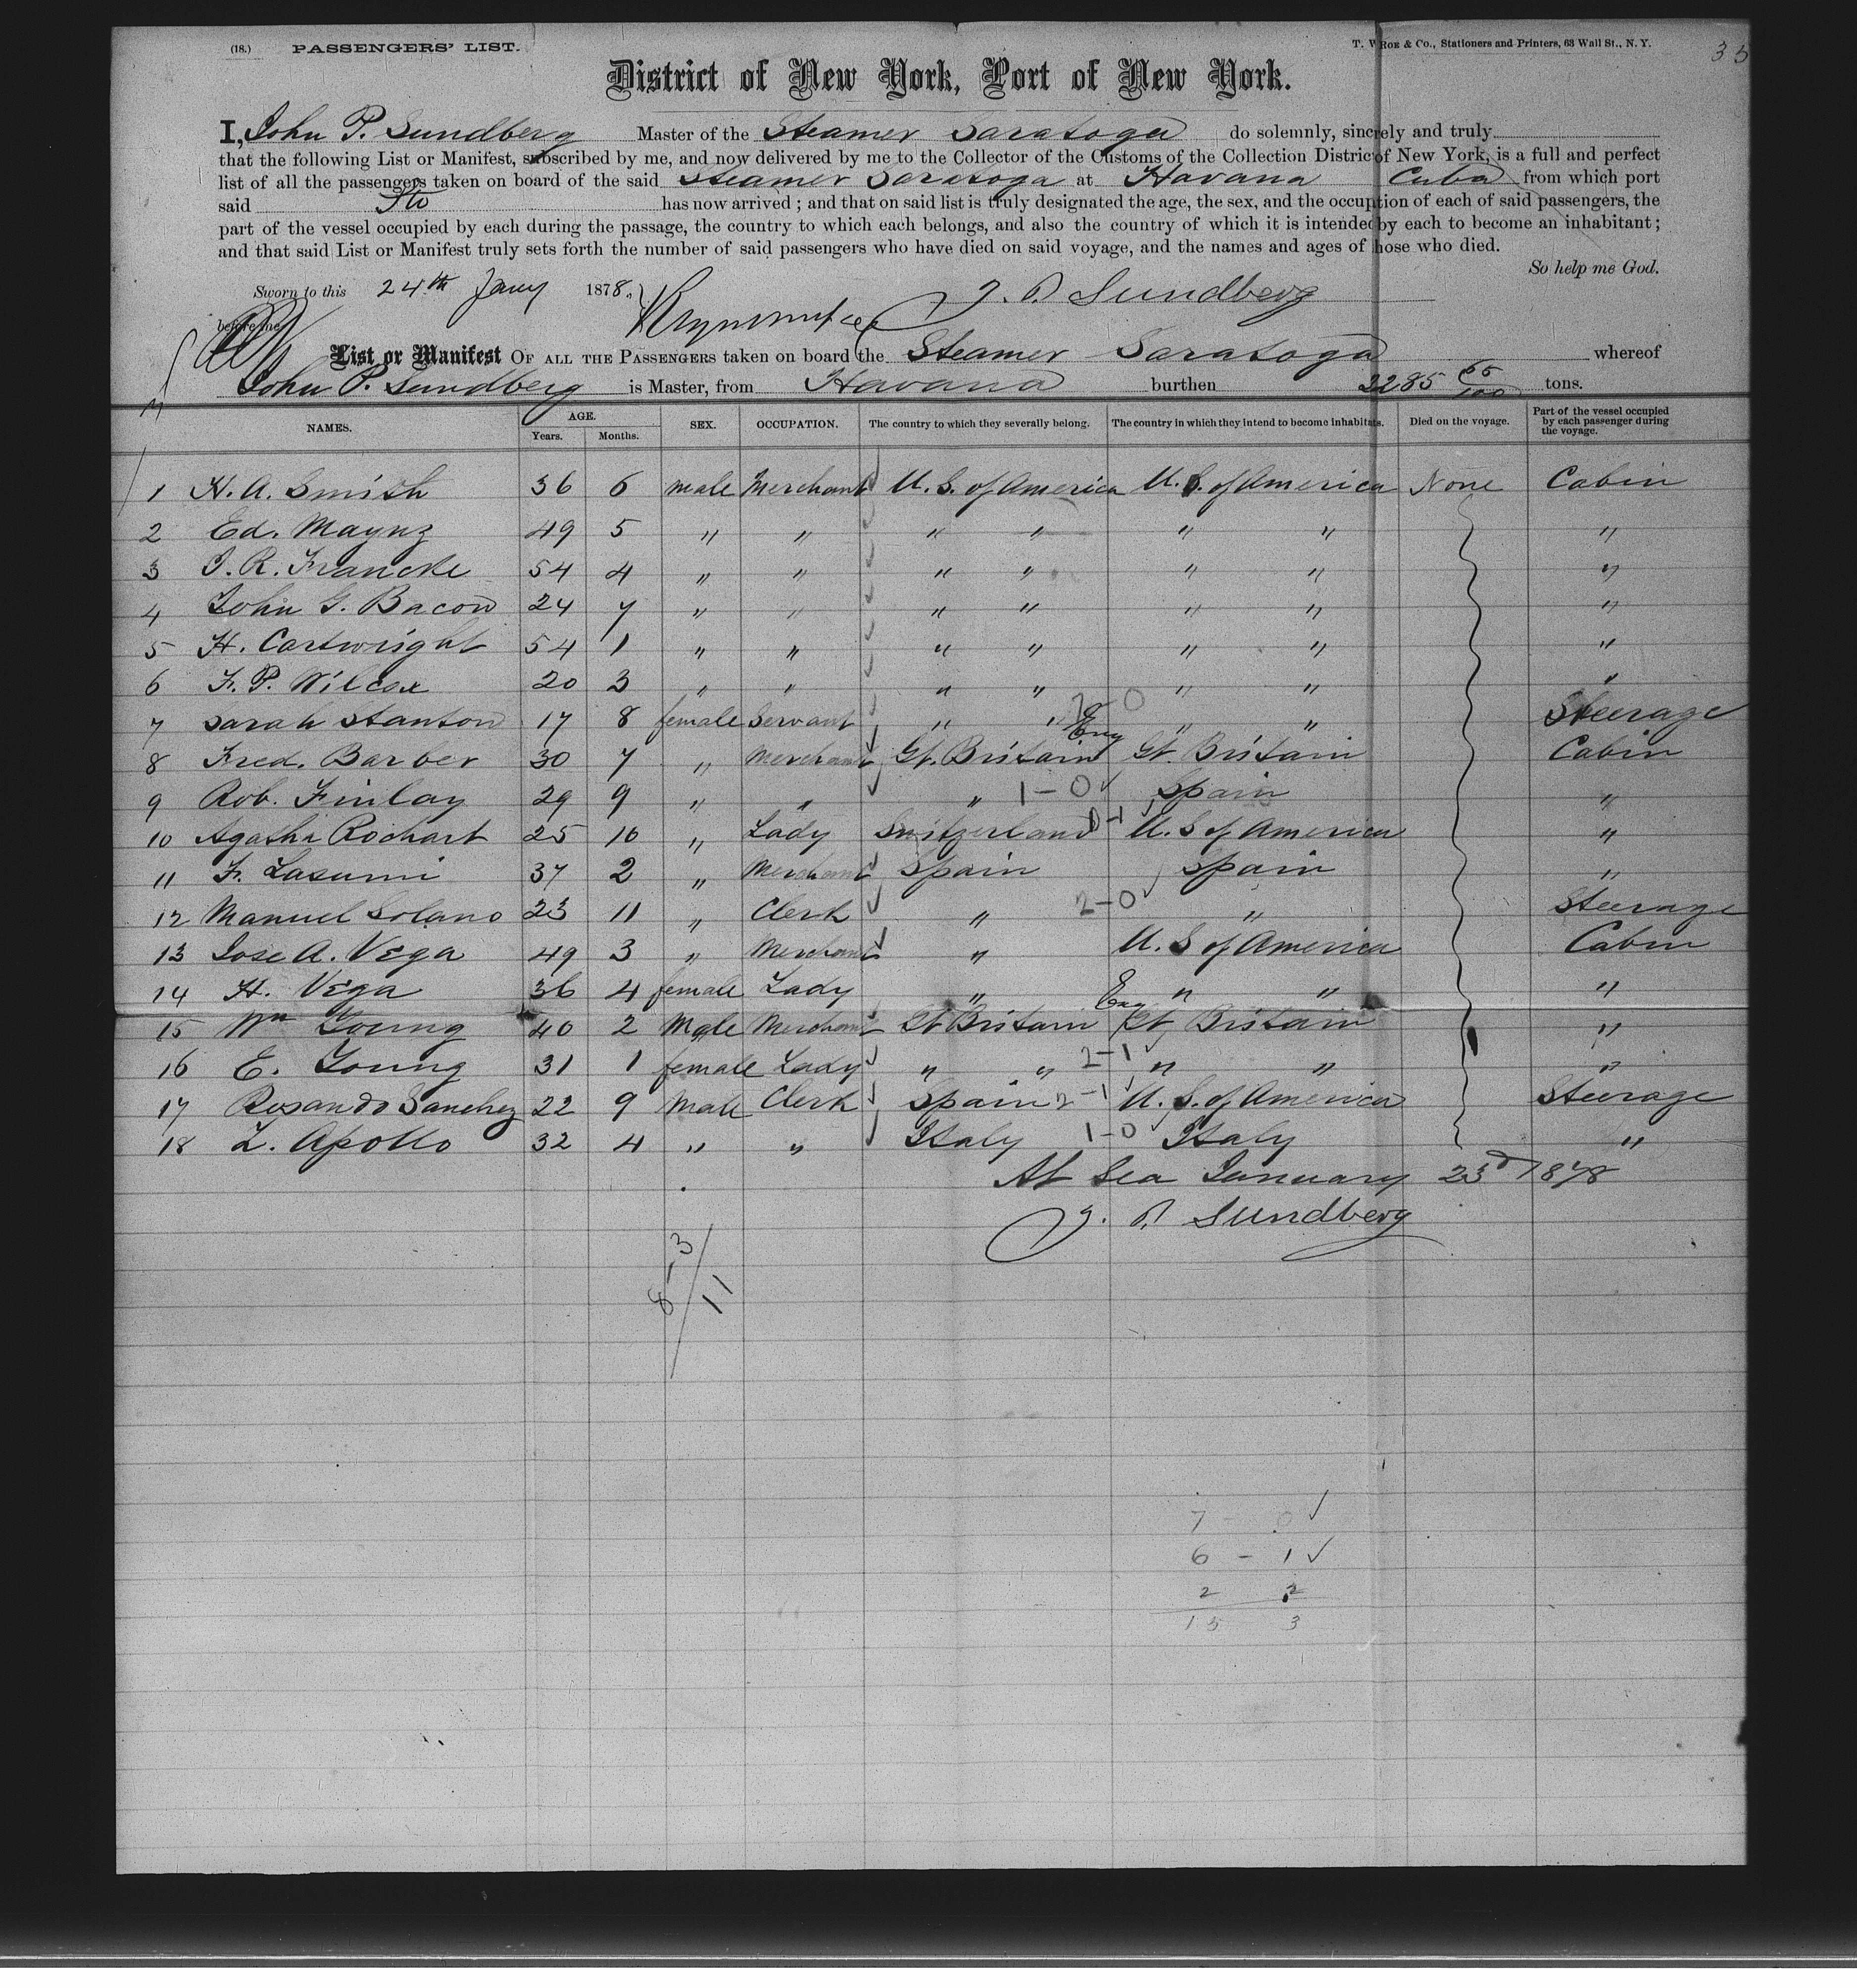 (18.) PASSENGERS' LIST. T. W. ROE & Co., Stationers and Printers, 63 Wall St., N. Y. 35
District of New York, Port of New York.
I, John P. Sundberg Master of the Steamer Saratoga do solemnly, sincerely and truly
that the following List or Manifest, subscribed by me, and now delivered by me to the Collector of the Customs of the Collection District of New York, is a full and perfect
list of all the passengers taken on board of the said Steamer Saratoga at Havana Cuba from which port
said Str has now arrived; and that on said list is truly designated the age, the sex, and the occupation of each of said passengers, the
part of the vessel occupied by each during the passage, the country to which each belongs, and also the country of which it is intended by each to become an inhabitant;
and that said List or Manifest truly sets forth the number of said passengers who have died on said voyage, and the names and ages of those who died.
So help me God.
Sworn to this 24th Jany 1878. J. P. Sundberg
before me
List or Manifest OF ALL THE PASSENGERS taken on board the Steamer Saratoga whereof
John P. Sundberg is Master, from Havana burthen 2285 55/100 tons.
NAMES. AGE. Years. Months. SEX. OCCUPATION. The country to which they severally belong. The country in which they intend to become inhabitants. Died on the voyage. Part of the vessel occupied by each passenger during the voyage.
1 H. A. Smith 36 6 male Merchant U. S. of America U. S. of America None Cabin
2 Ed. Maynz 49 5 " " " " " " "
3 J. R. Francke 54 4 " " " " " " "
4 John G. Bacon 24 7 " " " " " " "
5 H. Cartwright 54 1 " " " " " " "
6 F. P. Wilcox 20 3 " " " " " " "
7 Sarah Stanton 17 8 female Servant " " 7 0 " " Steerage
8 Fred. Barber 30 7 " Merchant Gt. Britain Eng Gt. Britain Cabin
9 Rob. Finlay 29 9 " " " 1-0 Spain "
10 Agathi Rochart 25 10 " Lady Switzerland 0-1 U. S of America "
11 F. Lasumi 37 2 " Merchant Spain Spain "
12 Manuel Solano 23 11 " Clerk " 2-0 " Steerage
13 Jose A. Vega 49 3 " Merchant " U. S of America Cabin
14 H. Vega 36 4 female Lady " " " "
15 Wm Young 40 2 Male Merchant Gt Britain Eng Gt Britain "
16 E. Young 31 1 female Lady " " 2-1 " " "
17 Rosando Sanchez 22 9 Male Clerk Spain 2-1 U. S. of America Steerage
18 L. Apollo 32 4 " " Italy 1-0 Italy "
At Sea January 23d 1878
J. P. Sundberg
8-3
11
7 - 0
6 - 1
2 2
15 3